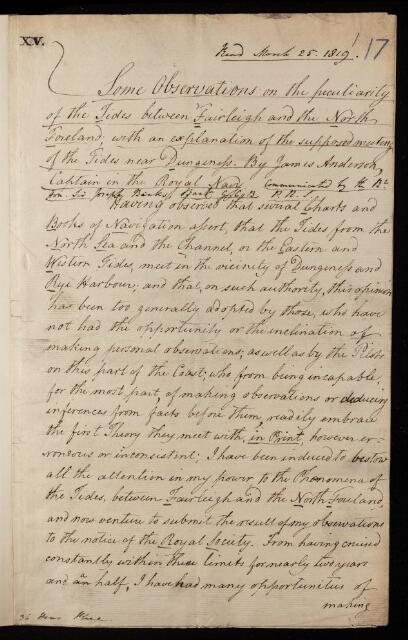 XV.
Read March 25. 1819.
17
Some Observations on the peculiarity
of the Tides between Fairleigh and the North
Foreland; with an explanation of the supposed meeting
of the Tides near Dungeness. By James Anderson,
Captain in the Royal Navy. Communicated by the Rt
Hon. Sir Joseph Banks, Bart G.C.B. P.R.S.
Having observed that several Charts and
Books of Navigation assert, that the Tides from the
North Sea and the Channel, or the Eastern and
Western Tides, meet in the vicinity of Dungeness and
Rye Harbour; and that, on such authority, this opinion
has been too generally adopted by those, who have
not had the opportunity or the inclination of
making personal observations; as well as by the Pilots
on this part of the Coast; who from being incapable,
for the most part, of making observations or deducing
inferences from facts before them, readily embrace
the first Theory they meet with, in Print, however er-
roneous or inconsistent; I have been induced to bestow
all the attention in my power to the Phenomena of
the Tides, between Fairleigh and the North Foreland,
and now venture to submit the result of my observations
to the notice of the Royal Society. From having cruised
constantly within these limits for nearly two years
and an half, I have had many opportunities of
making